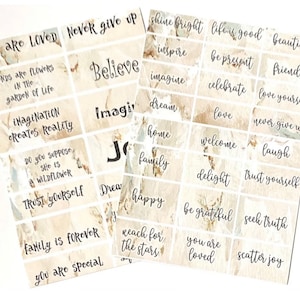 ARE LOVED
NEVER GIVE UP
ARE FLOWERS
IN THE
GARDEN OF LIFE
Believe
IMAGINATION
CREATES REALITY
Imagi
DO YOU SUPPOSE
SHE IS
A WILDFLOWER
JO
TRUST YOURSELF
Dream
FAMILY IS FOREVER
YOU ARE SPECIAL
shine bright
life is good
beaut
inspire
be present
friend
imagine
celebrate
love your
dream
love
never give u
home
welcome
laugh
family
delight
trust yourself
happy
be grateful
seek truth
reach for
the stars
you are
loved
scatter joy